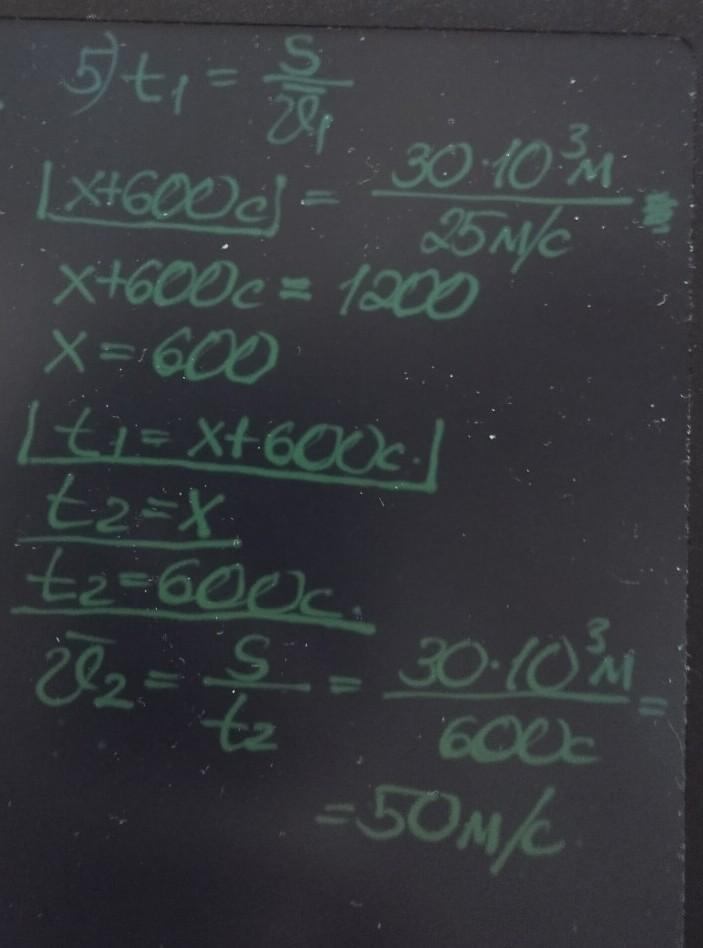 5) t₁ = S / v̄₁
|x+600с| = 30·10³м / 25м/с =
x+600с = 1200
x = 600
|t₁ = x+600с.|
t₂ = x
t₂ = 600с.
v̄₂ = S / t₂ = 30·10³м / 600с =
= 50м/с